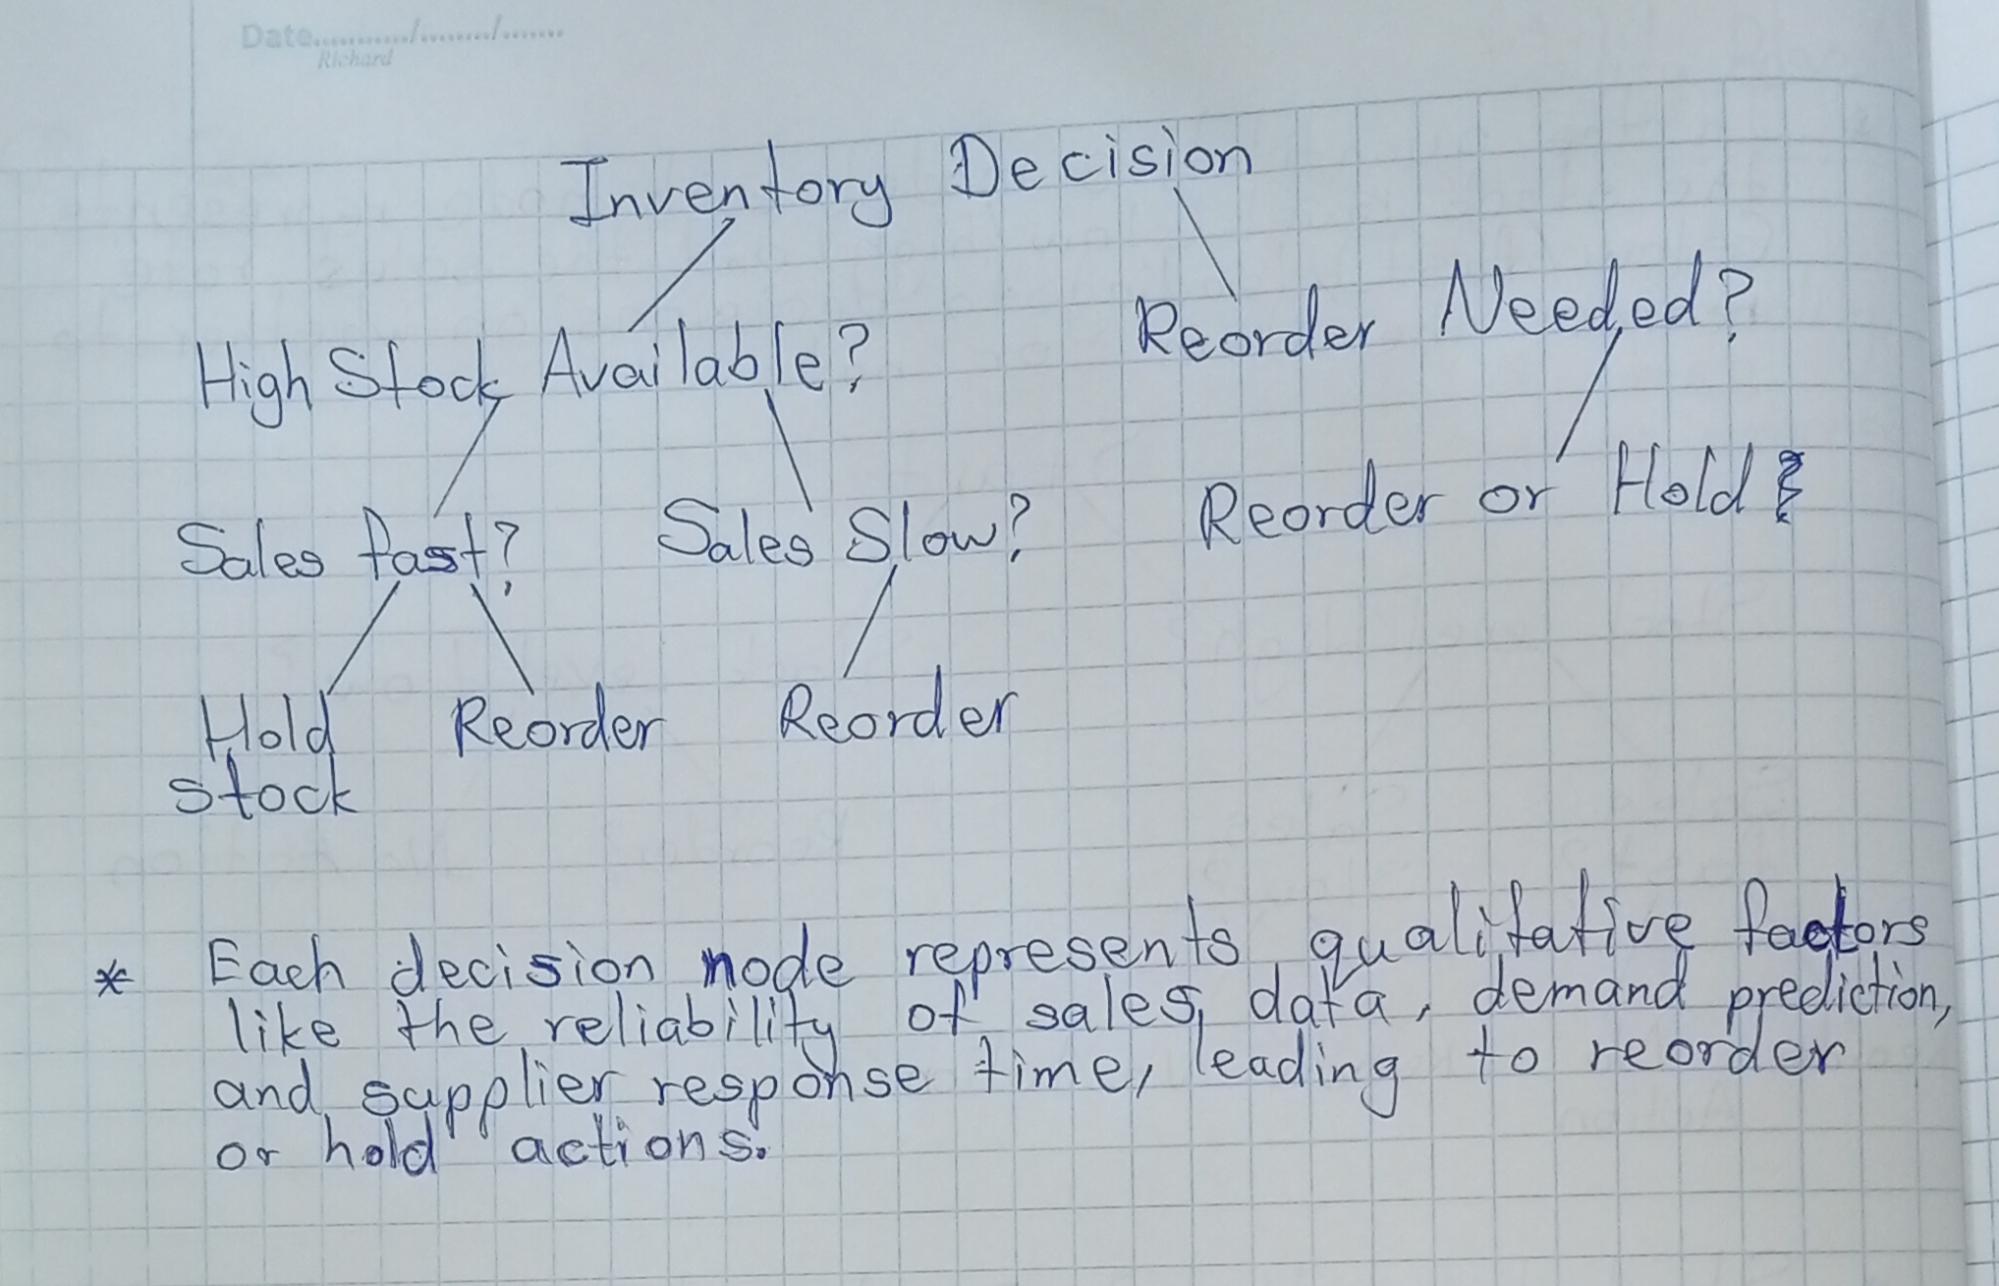 Date........../......../.......
Richard
Inventory Decision
High Stock Available? Reorder Needed?
Sales fast? Sales Slow? Reorder or Hold
Hold Reorder Reorder
stock
* Each decision node represents qualitative factors
like the reliability of sales data, demand prediction,
and supplier response time, leading to reorder
or hold actions.